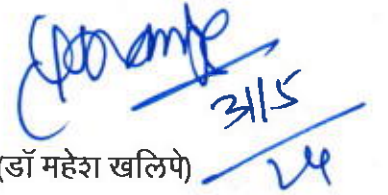 31/5
24
(डॉ महेश खलिपे)